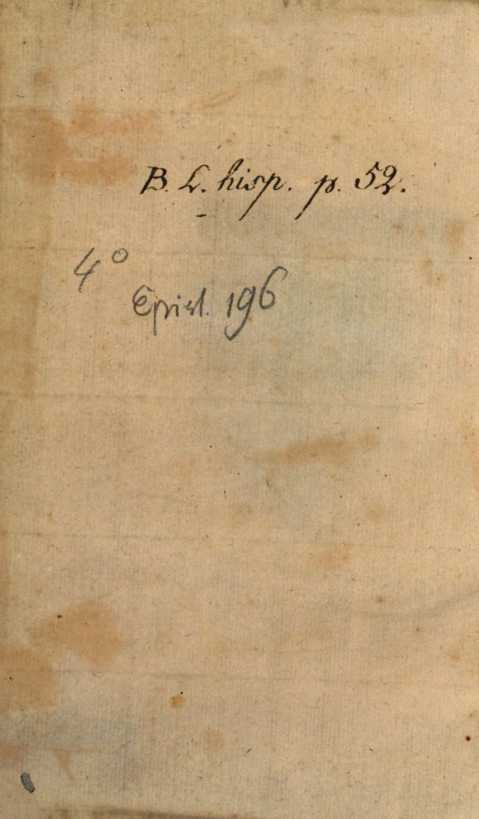 B. L. hisp. p. 52.
4°
Epist. 196